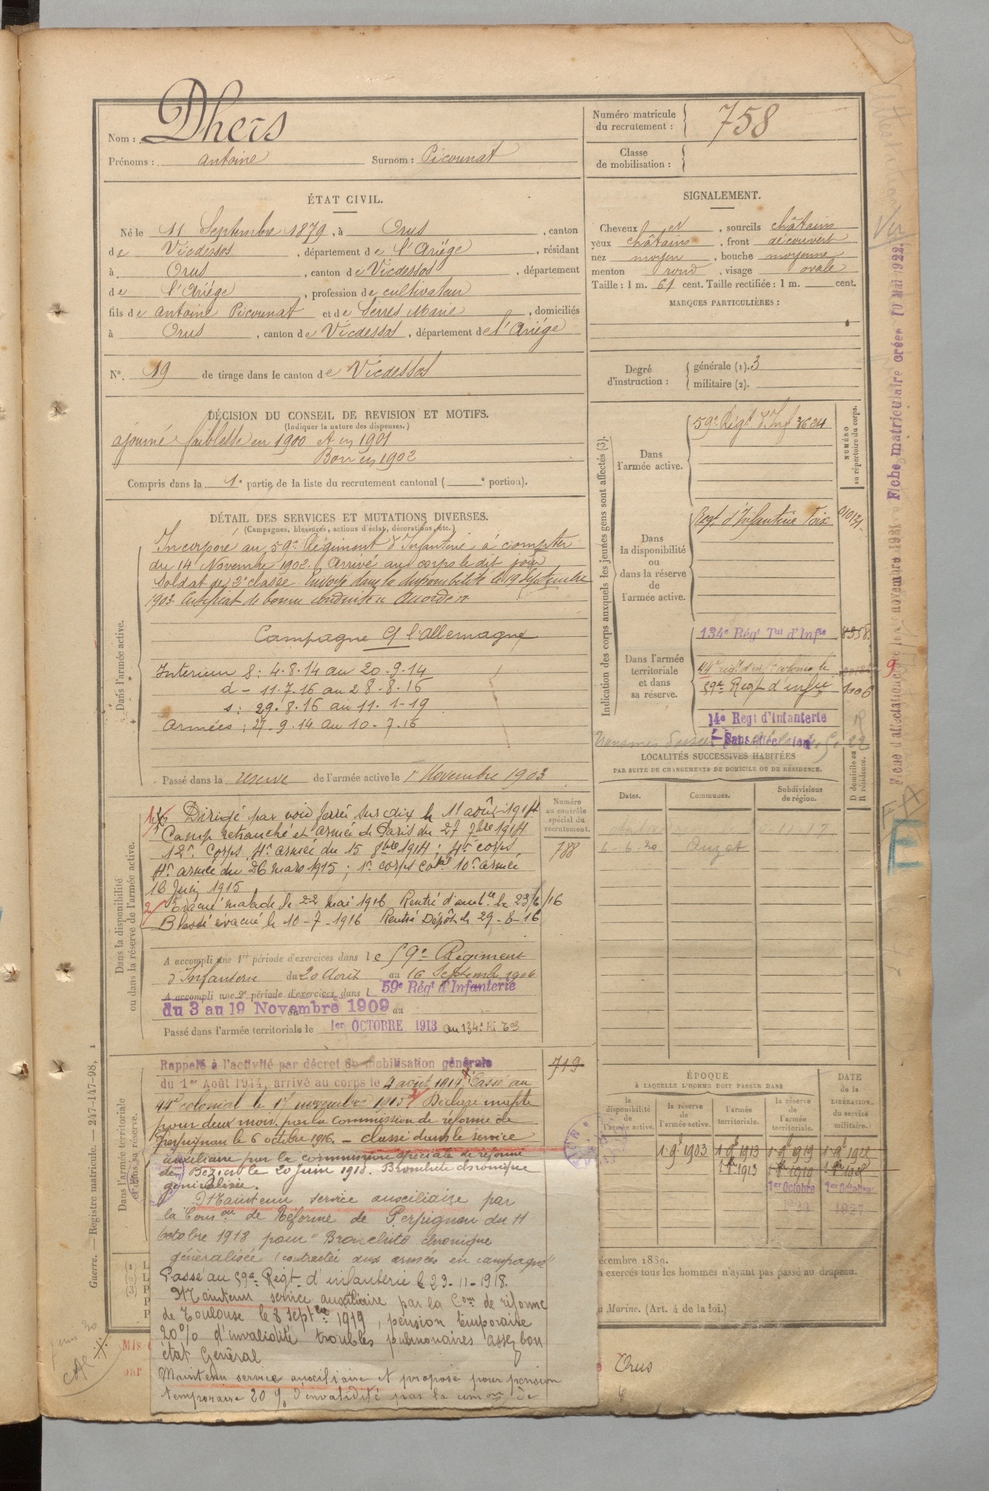 Nom : Dhers
Prénoms : Antoine Surnom : Picounat
Numéro matricule du recrutement : 758
Classe de mobilisation :
ÉTAT CIVIL.
Né le 11 Septembre 1879, à Orus, canton
de Vicdessos, département de l'Ariége, résidant
à Orus, canton de Vicdessos, département
de l'Ariége, profession de cultivateur
fils de Antoine Picounat et de Serres Marie, domiciliés
à Orus, canton de Vicdessos, département de l'Ariége
N°. 19 de tirage dans le canton de Vicdessos
SIGNALEMENT.
Cheveux et, sourcils châtains
yeux châtains, front découvert
nez moyen, bouche moyenne
menton rond, visage ovale
Taille : 1 m. 61 cent. Taille rectifiée : 1 m. cent.
MARQUES PARTICULIÈRES :
Degré d'instruction :
générale (1). 3
militaire (2).
DÉCISION DU CONSEIL DE REVISION ET MOTIFS.
(Indiquer la nature des dispenses.)
ajourné faiblesse en 1900 et en 1901
Bon en 1902
Compris dans la 1e partie de la liste du recrutement cantonal ( e portion).
DÉTAIL DES SERVICES ET MUTATIONS DIVERSES.
(Campagnes, blessures, actions d'éclat, décorations, etc.)
Dans l'armée active.
Incorporé au 59e Régiment d'Infanterie à compter
du 14 Novembre 1902. Arrivé au corps le dit jour
Soldat de 2e classe. Envoyé dans la disponibilité le 19 Septembre
1903. Certificat de bonne conduite Accordé
Campagne C/ l'Allemagne
Intérieur S : 4.8.14 au 20.9.14
d - 11.7.16 au 28.8.16
s : 29.8.16 au 11.1.19
Armées : 27.9.14 au 10.7.16
Passé dans la réserve de l'armée active le 1 Novembre 1903
Dans la disponibilité ou dans la réserve de l'armée active.
Dirigé par voie ferrée sur dix le 11 août 1914
Camp retranché et armée de Paris du 27 7bre 1914
12e Corps 4e armée du 15 8bre 1914 ; 4e corps
4e armée du 26 mars 1915 ; 1e corps col 10e armée
16 Juin 1915
2/ Evacué malade le 22 mai 1916 Rentré d'amb le 23/6/16
Blessé évacué le 10-7-1916 Rentré Dépôt le 29-8-16
A accompli une 1re période d'exercices dans le 59e Régiment
d'Infanterie du 20 Août au 16 Septembre 1906
A accompli une 2e période d'exercices dans l 59e Régt d'Infanterie
du 3 au 19 Novembre 1909 au
Passé dans l'armée territoriale le 1er OCTOBRE 1913 au 134e
Numéro au contrôle spécial du recrutement.
788
719
Dans l'armée territoriale et dans sa réserve.
Rappelé à l'activité par décret de mobilisation générale
du 1er Août 1914, arrivé au corps le 4 août 1914. Passé au
44e colonial le 17 novembre 1915. Déclaré inapte
pour deux mois par la commission de réforme de
Perpignan le 6 octobre 1916. - classé dans le service
auxiliaire par la commission spéciale de réforme
de Béziers le 20 juin 1918. Bronchite chronique
généralisée.
Maintenu service auxiliaire par
la Com de Réforme de Perpignan du 11
octobre 1918 pour "Bronchite chronique
généralisée (contractée aux armées en campagne)"
Passé au 59e Régt d'infanterie le 23-11-1918.
Maintenu service auxiliaire par la Con de réforme
de Toulouse le 8 septbre 1919, pension temporaire
20% d'invalidité troubles pulmonaires assez bon
état Général
Maintenu service auxiliaire et proposé pour pension
temporaire 20 % d'invalidité par la com de
Indication des corps auxquels les jeunes gens sont affectés (3).
NUMÉRO au répertoire du corps.
Dans l'armée active.
59e Régt d'Inf 3624
Dans la disponibilité ou dans la réserve de l'armée active.
Régt d'Infanterie Foix
Dans l'armée territoriale et dans sa réserve.
134e Régt Tal d'Infie 8358
44e régt d'inf coloniale
59e Régt d'infie 1106
14e Regt d'Infanterie
Sans affectation
LOCALITÉS SUCCESSIVES HABITÉES
PAR SUITE DE CHANGEMENTS DE DOMICILE OU DE RÉSIDENCE.
Dates. Communes. Subdivisions de région. D domicile ou R résidence.
6-6.20 Auzat
ÉPOQUE
À LAQUELLE L'HOMME DOIT PASSER DANS
DATE de la LIBÉRATION du service militaire.
la disponibilité de l'armée active. la réserve de l'armée active. l'armée territoriale. la réserve de l'armée territoriale.
1 9 1903 1 9 1913 1 9 1919
1er Octobre 1er Octobre
1927
écembre 1889.
n exercés tous les hommes n'ayant pas passé au drapeau.
u Marine. (Art. 4 de la loi.)
Orus
Fiche matriculaire créée 10 Mai 1922.
novembre 1921
Vu
E
Guerre. — Registre matricule. — 247-147-98.